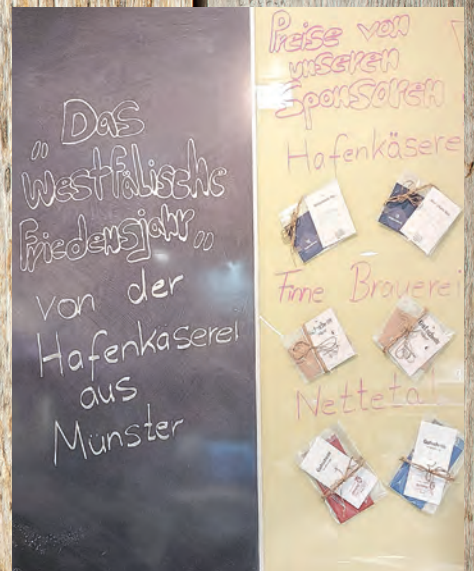 Das
"Westfälische
Friedensjahr"
von der
Hafenkäserei
aus
Münster
Preise von
unseren
Sponsoren
Hafenkäsere
Finne Brauerei
Nettetal